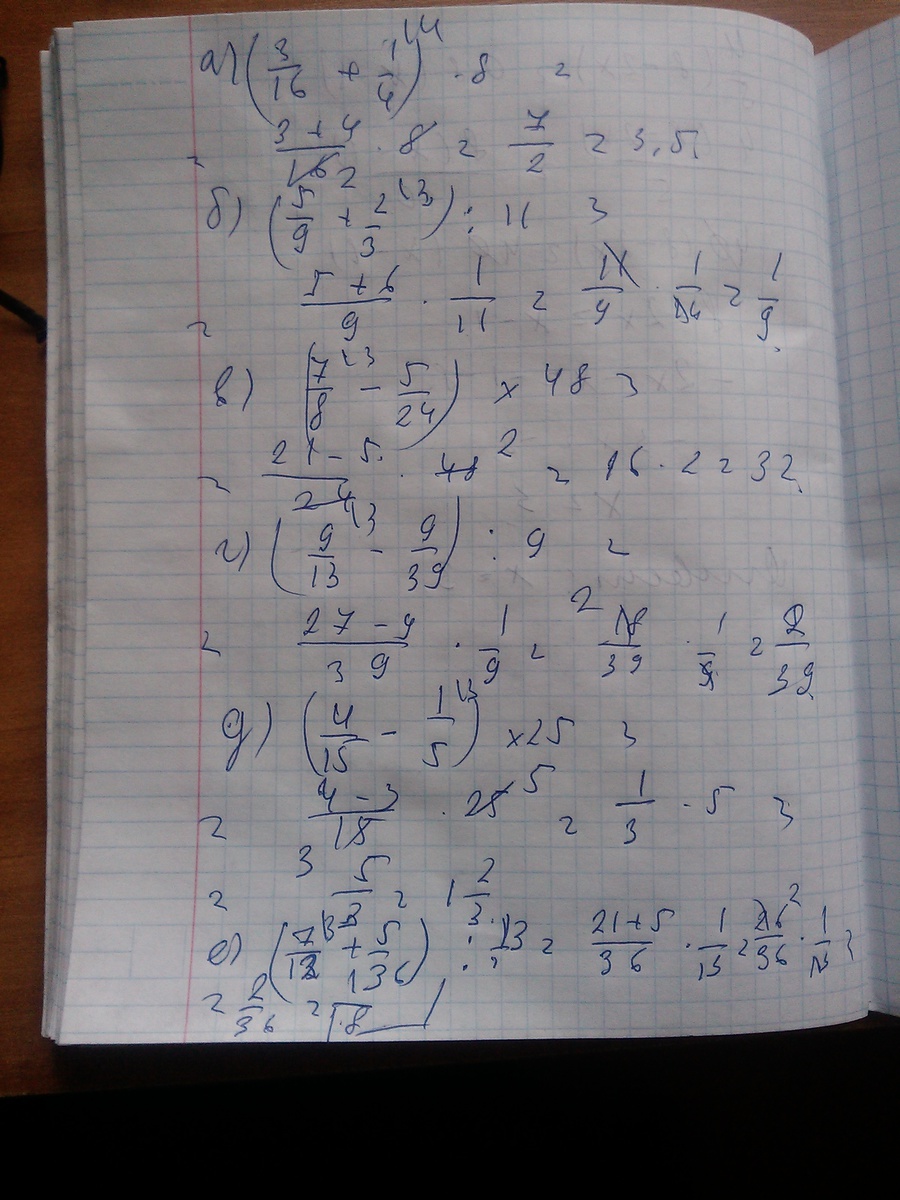 а) (3/16 + 1/4^(4) ) · 8 =
= (3+4)/16 2 · 8 = 7/2 = 3,5.
б) (5/9 + 2/3^(3) ) : 11 =
= (5+6)/9 · 1/11 = 11/9 · 1/11 = 1/9.
в) (7/8^(3) − 5/24) × 48 =
= (21−5)/24 · 48 2 = 16 · 2 = 32.
г) (9/13^(3) − 9/39) : 9 =
= (27−9)/39 · 1/9 = 2 18/39 · 1/9 = 2/39
д) (4/15 − 1/5^(3) ) × 25 =
= (4−3)/15 3 · 25 5 = 1/3 · 5 =
= 5/3 = 1 2/3.
е) (7/12^(3) + 5/36) : 13 = (21+5)/36 · 1/13 = 26 2/36 · 1/13 =
= 2/36 =